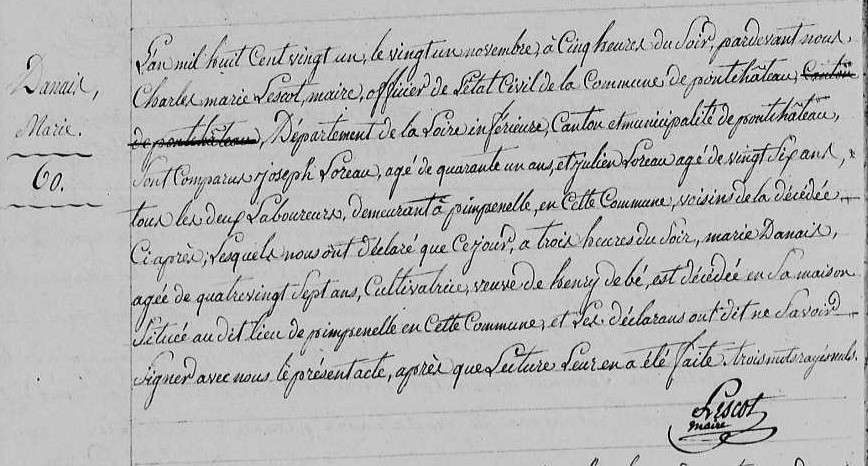 Danais,
Marie.
60.
L'an mil huit cent vingt un, le vingt un novembre, à cinq heures du soir, pardevant nous,
Charles marie Lescot, maire, officier de L'état Civil de la Commune de pontchâteau, Canton
de pontchâteau, Département de la Loire inférieure, Canton et municipalité de pontchâteau,
Sont Comparus joseph Loreau, agé de quarante un ans, et julien Loreau agé de vingt Six ans,
tous les deux Laboureurs, demeurant à pimpenelle, en Cette Commune, voisins de la décédée
Ci après; Lesquels nous ont déclaré que Ce jour, a trois heures du Soir, marie Danais,
agée de quatrevingt Sept ans, Cultivatrice, veuve de henry de bé, est décédée en Sa maison
Située au dit lieu de pimpenelle en Cette Commune, et Les déclarans ont dit ne Savoir
Signer avec nous le présent acte, après que Lecture Leur en a été faite. trois mots rayés nuls.
Lescot
maire